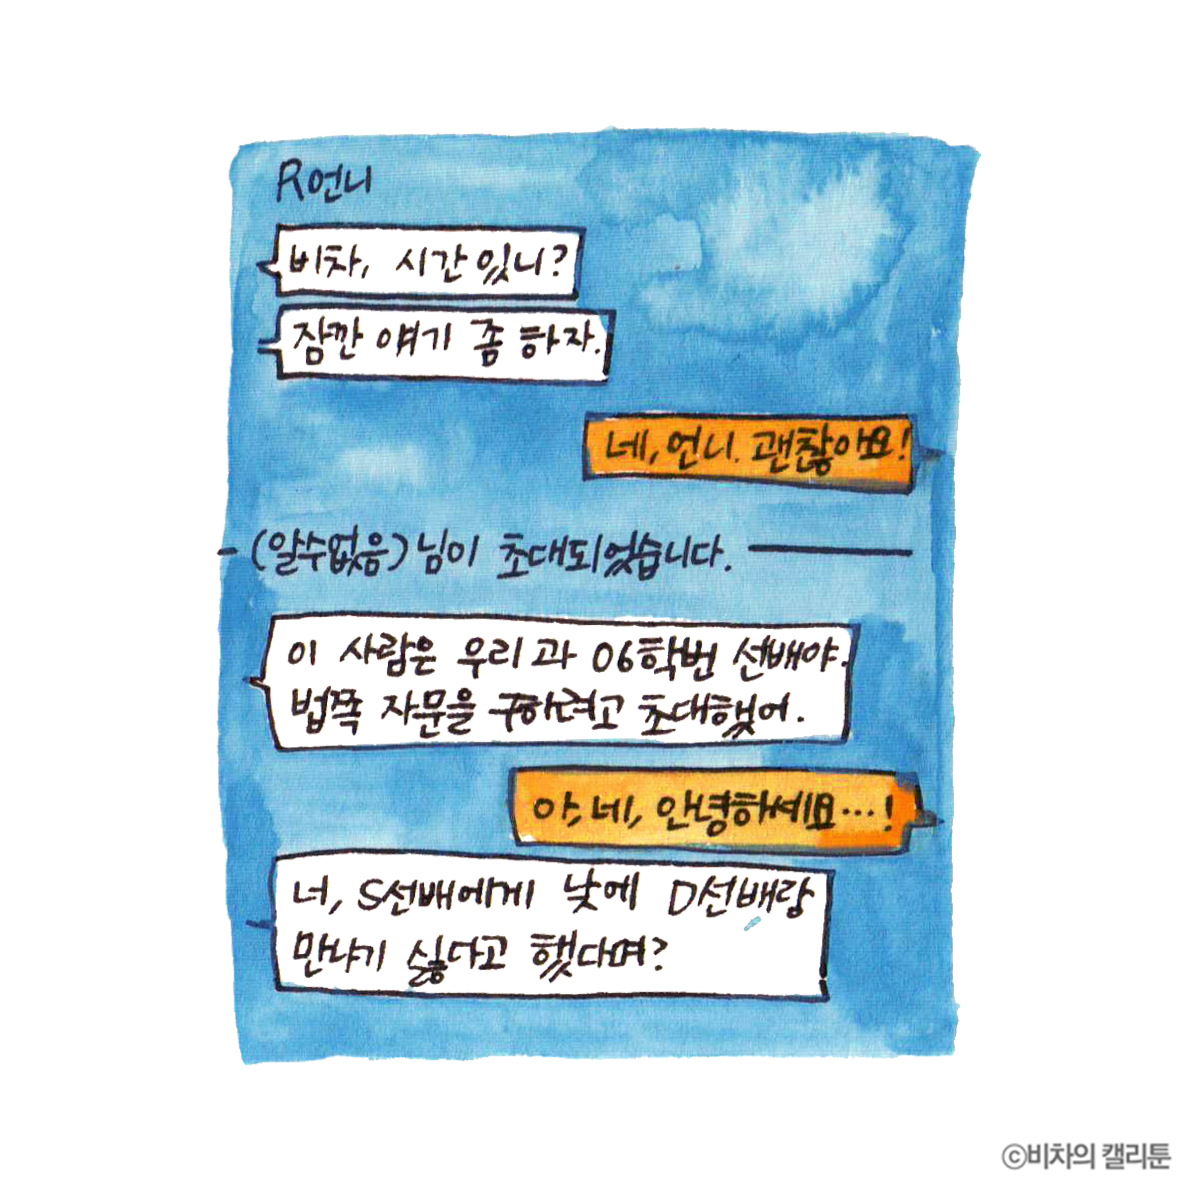 R언니
비차, 시간있니?
잠깐 얘기 좀 하자.
네, 언니. 괜찮아요!
(알수없음)님이 초대되었습니다.
이 사람은 우리과 06학번 선배야.
법쪽 자문을 구하려고 초대했어.
아, 네, 안녕하세요...!
너, S선배에게 낮에 D선배랑
만나기 싫다고 했다며?
©비차의 캘리툰